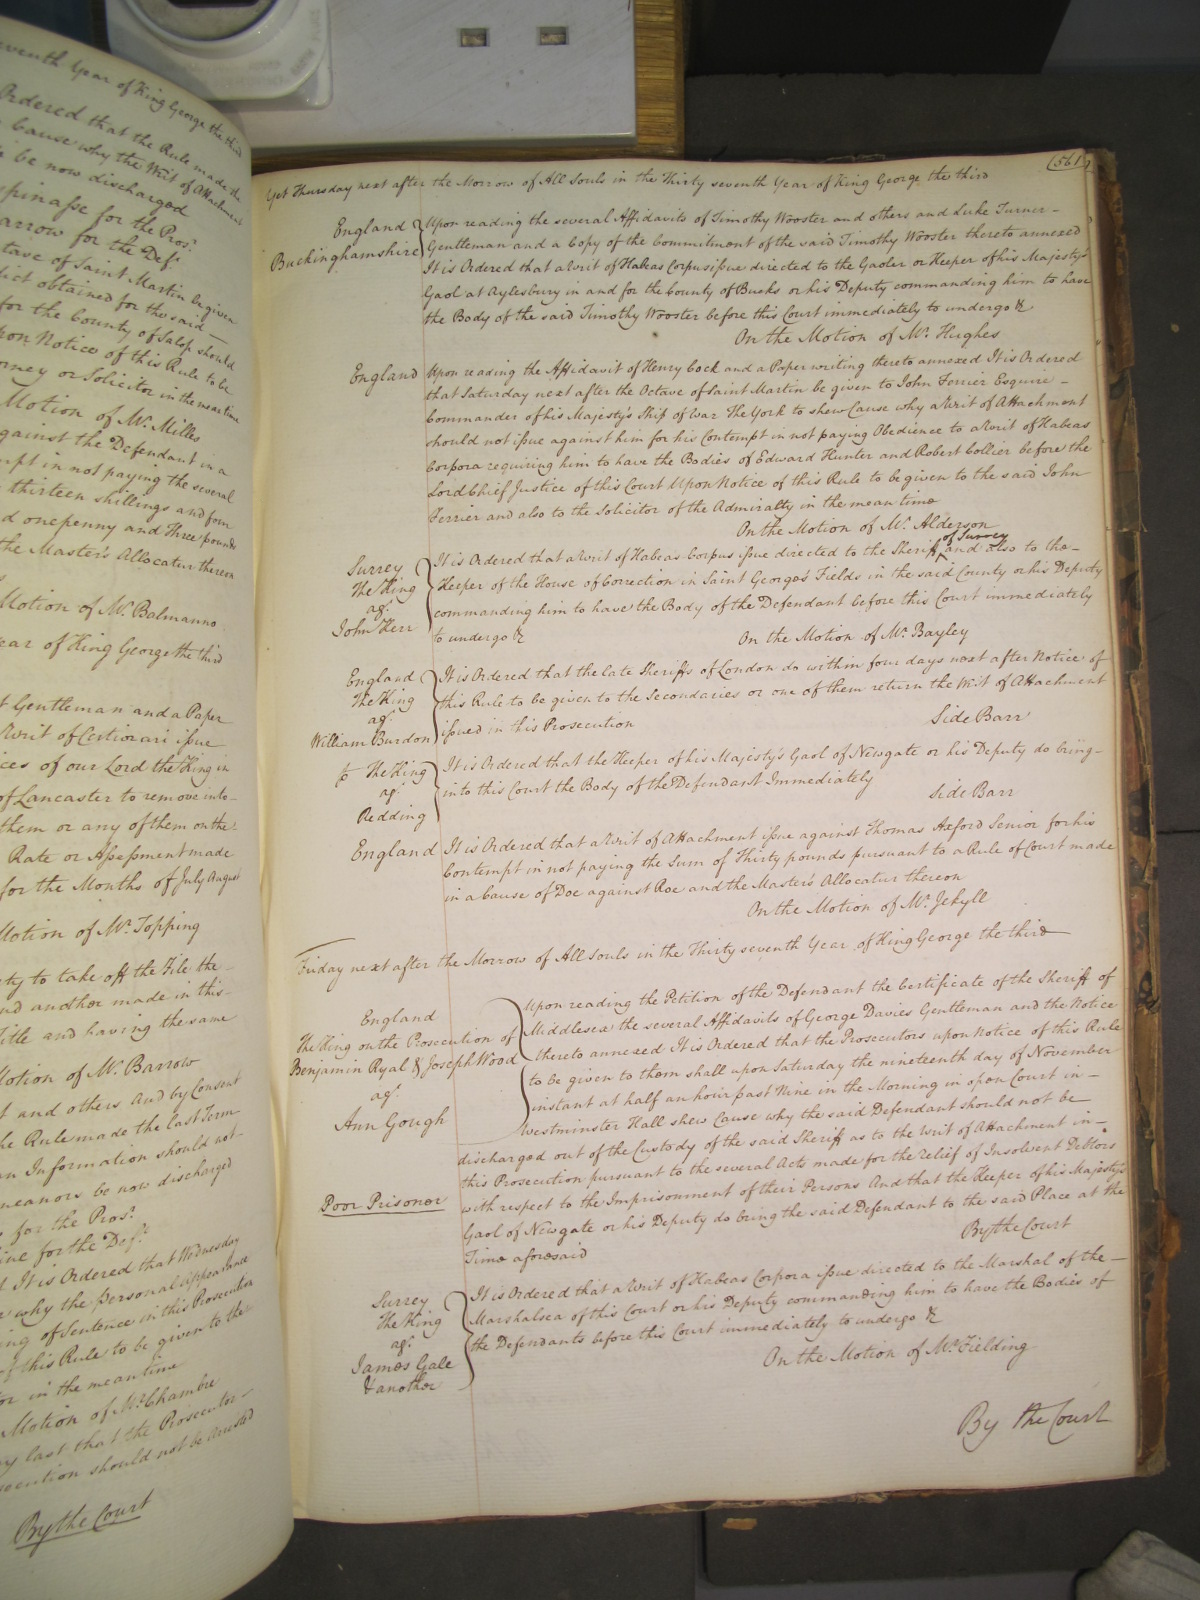 eventh Year of King George the third
Ordered that the Rule made the
Cause why the Writ of Attachment
be now discharged
spinasse for the Pros.r
arrow for the Def.t
tave of Saint Martin be given
dict obtained for the said
for the County of Salop should
pon Notice of this Rule to be
orney or Solicitor in the mean time
Motion of M.r Milles
gainst the Defendant in a
mpt in not paying the several
thirteen shillings and four
d one penny and Three pounds
the Master's Allocatur thereon
Motion of M.r Balmanno
ear of King George the third
t Gentleman and a Paper
Writ of Certiorari issue
ces of our Lord the King in
of Lancaster to remove into
them or any of them on the
Rate or Assessment made
for the Months of July August
Motion of M.r Topping
ty to take off the File the
nd another made in this
Title and having the same
Motion of M.r Barrow
t and others And by Consent
he Rule made the last Term
an Information should not
meanors be now discharged
for the Pros.r
ine for the Def.t
It is Ordered that Wednesday
why the personal appearance
ing of Sentence in this Prosecution
f this Rule to be given to the
tor in the mean time
Motion of M.r Chambre
ay last that the Prosecutor
osecution should not be arrested
By the Court
(561)
Yet Thursday next after the Morrow of All Souls in the Thirty seventh Year of King George the third
England
Buckinghamshire
Upon reading the several Affidavits of Timothy Wooster and others and Luke Turner
Gentleman and a Copy of the Commitment of the said Timothy Wooster thereto annexed
It is Ordered that a Writ of Habeas Corpus issue directed to the Gaoler or Keeper of his Majesty's
Gaol at Aylesbury in and for the County of Bucks or his Deputy commanding him to have
the Body of the said Timothy Wooster before this Court immediately to undergo &c
On the Motion of M.r Hughes
England
Upon reading the Affidavit of Henry Cock and a Paper writing thereto annexed It is Ordered
that Saturday next after the Octave of Saint Martin be given to John Ferrier Esquire
Commander of his Majesty's Ship of War The York to shew Cause why a Writ of Attachment
should not issue against him for his Contempt in not paying Obedience to a Writ of Habeas
Corpora requiring him to have the Bodies of Edward Hunter and Robert Collier before the
Lord Chief Justice of this Court Upon Notice of this Rule to be given to the said John
Ferrier and also to the Solicitor of the Admiralty in the mean time
On the Motion of M.r Alderson
Surrey
The King
ag.t
John Kerr
of Surrey
It is Ordered that a Writ of Habeas Corpus issue directed to the Sheriff and also to the
Keeper of the House of Correction in Saint George's Fields in the said County or his Deputy
commanding him to have the Body of the Defendant before this Court immediately
to undergo &c
On the Motion of M.r Bayley
England
The King
ag.t
William Burdon
It is Ordered that the late Sheriffs of London do within four days next after Notice of
this Rule to be given to the Secondaries or one of them return the Writ of Attachment
issued in this Prosecution
Side Barr
The King
ag.t
Redding
It is Ordered that the Keeper of his Majesty's Gaol of Newgate or his Deputy do bring
into this Court the Body of the Defendant Immediately
Side Barr
England
It is Ordered that a Writ of Attachment issue against Thomas Axford Senior for his
Contempt in not paying the Sum of Thirty pounds pursuant to a Rule of Court made
in a Cause of Doe against Roe and the Master's Allocatur thereon
On the Motion of M.r Jekyll
Friday next after the Morrow of All Souls in the Thirty seventh Year of King George the third
England
The King on the Prosecution of
Benjamin Ryal & Joseph Wood
ag.t
Ann Gough
Poor Prisoner
Upon reading the Petition of the Defendant the Certificate of the Sheriff of
Middlesex the several Affidavits of George Davies Gentleman and the Notice
thereto annexed It is Ordered that the Prosecutors upon Notice of this Rule
to be given to them shall upon Saturday the nineteenth day of November
instant at half an hour past Nine in the Morning in open Court in
Westminster Hall shew Cause why the said Defendant should not be
discharged out of the Custody of the said Sheriff as to the Writ of Attachment in
this Prosecution pursuant to the several Acts made for the Relief of Insolvent Debtors
with respect to the Imprisonment of their Persons And that the Keeper of his Majesty's
Gaol of Newgate or his Deputy do bring the said Defendant to the said Place at the
Time aforesaid
By the Court
Surrey
The King
ag.t
James Gale
& another
It is Ordered that a Writ of Habeas Corpora issue directed to the Marshal of the
Marshalsea of this Court or his Deputy commanding him to have the Bodies of
the Defendants before this Court immediately to undergo &c
On the Motion of M.r Fielding
By the Court